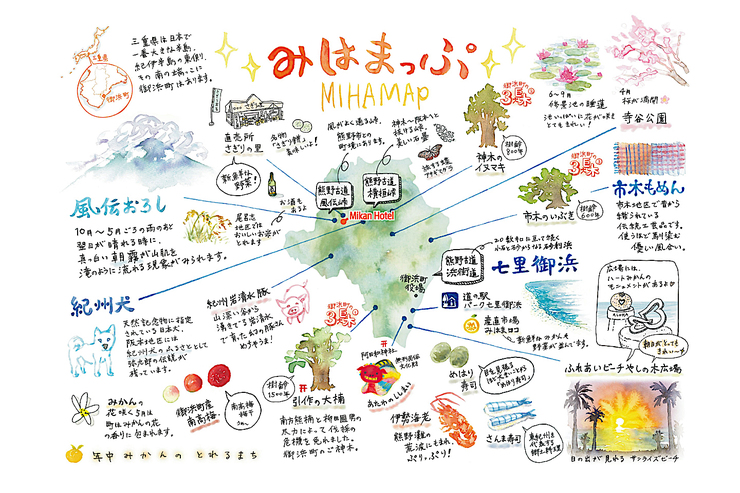 みはまっぷ
MIHAMAP
三重県は日本で
一番大きな半島、
紀伊半島の東側、
その南の端っこに
御浜町はあります。
三重県
御浜町
直売所
さぎりの里
名物
美味しいよ!
新鮮な
野菜!
風がよく通る峠、
熊野市との
町境にあります。
神木〜阪本へと
抜ける峠、
美しい石畳
熊野古道
風伝峠
熊野古道
横垣峠
Mikan Hotel
御浜町
神木の
イヌマキ
樹齢
6〜9月
池いっぱいに花が咲き
とてもきれい!
4月
桜が満開
寺谷公園
御浜町
市木もめん
市木地区で昔から
織られている
伝統工芸品です。
使うほど馴染む
優しい風合い。
市木のいぶき
樹齢
600年
風伝おろし
10月〜5月ごろの雨のあと
翌日が晴れる時に、
真っ白い朝霧が山肌を
滝のように流れる現象がみられます。
お酒も
あるよ
尾呂志
地区では
おいしいお米が
とれます
熊野古道
浜街道
御浜町
役場
七里御浜
道の駅
パーク七里御浜
産直市場
新鮮なみかんや
野菜が並んでいます。
広場には、
ハートみかんの
モニュメントがあるよ
朝日がとっても
きれい〜
ふれあいビーチやしの木広場
日の出が見れる サンライズビーチ
紀州犬
天然記念物に指定
されている日本犬。
阪本地区には
紀州犬のふるさととして
弥九郎の伝説が
残っています。
紀州岩清水豚
山深い谷から
湧きでる岩清水
で育った幻の豚さん
御浜町
樹齢
1500年
引作の大楠
南方熊楠と柳田國男の
尽力によって伐採の
危機を免れました。
御浜町のご神木。
阿田和神社
あたわのししまい
伊勢海老
熊野灘の
荒波にもまれ
ぷりっぷり!
めはり
寿司
さんま寿司
東紀州を
代表する
郷土料理
みかんの
花咲く5月は
町はみかんの花
の香りに包まれます。
御浜町産
南高梅
南高梅
梅干
年中みかんのとれるまち